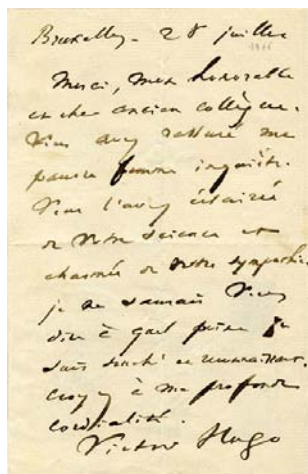 Bruxelles - 28 juillet
1866
Merci, mon honorable
et cher ancien collègue.
Vous avez rassuré ma
pauvre femme inquiète.
Vous l'avez éclairée
de votre science et
charmée de votre sympathie.
je ne saurais vous
dire à quel point je
suis touché et reconnaissant.
croyez à ma profonde
cordialité.
Victor Hugo